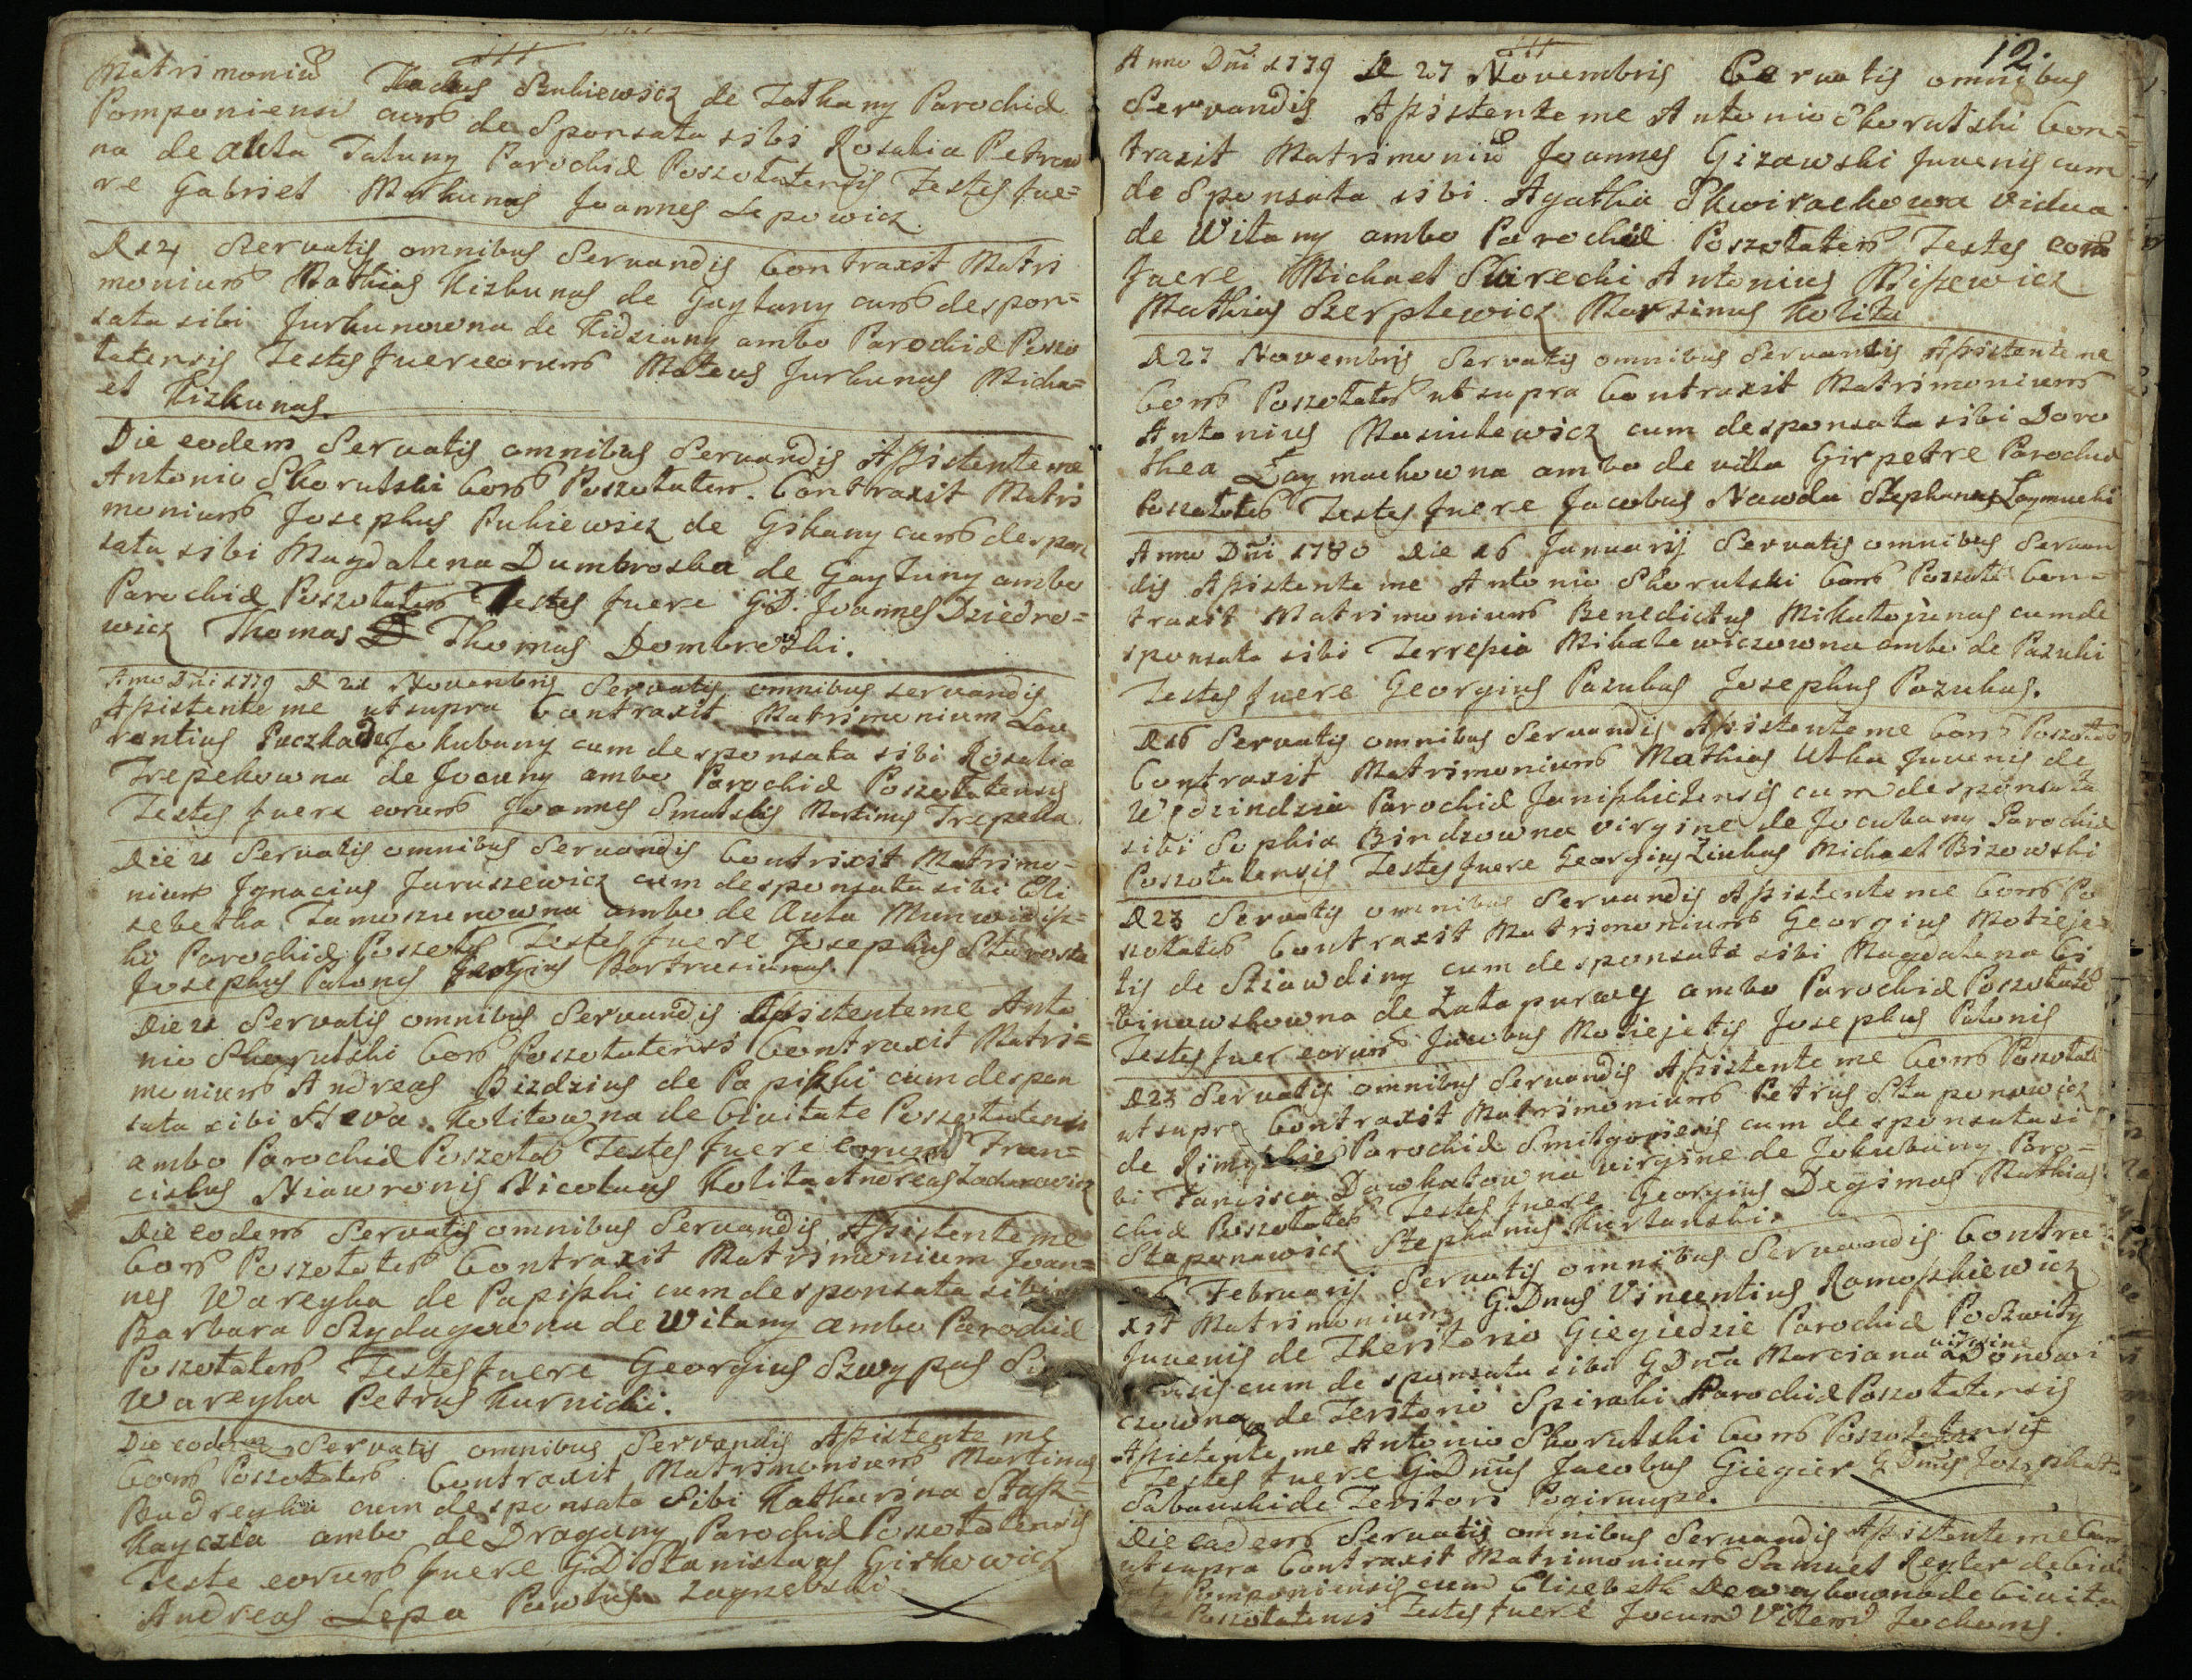 Matrimoniu Tadeus Rukiewicz de Tatkany Parochia
Pomponiensi cum de Sponsata sibi Rosalia Petrow
na de Aula Taluny Parochia Poszolatensis Testes fue=
re Gabriel Matkunas Joannes Lepowicz.
D 24 Servatis omnibus Servandis Contraxit Matri
monium Mathias Kizkunas de Gaytany cum despon=
sata sibi Jurkunowna de Kidziuny ambo Parochia Poszo
latensis Testes fuere eorum Mateus Jurkunas Micha=
el Kizkunas.
Die eodem Servatis omnibus Servandis Assistente me
Antonio Skorulski Com Poszolaten. Contraxit Matri
monium Josephus Rukiewicz de Gikany cum despon
sata sibi Magdalena Dumbroska de Gaytuny ambo
Parochia Poszolaten Testes fuere G.D. Joannes Dziedro=
wicz Thomas Thomas Dombroski.
Anno Dni 1779 D 21 Novembris Servatis omnibus servandis
Assistente me ut supra Contraxit Matrimonium Lau
rentius Puczka de Jokubany cum desponsata sibi Rosalia
Trepekowna de Jocuny ambo Parochia Poszolatensis
Testes fuere eorum Joannes Smulskis Martinus Trepekka
Die 21 Servatis omnibus Servandis Contraxit Matrimo=
nium Ignacius Juruszewicz cum desponsata sibi Eli
sebetha Tamoszunowna ambo de Aula
ko Parochia Poszol Testes fuere Josephus Starosta
Josephus Palonis Georgius
Die 21 Servatis omnibus Servandis Assistente me Anto
nio Skorulski Com Poszolatensi Contraxit Matri=
monium Andreas Bizdzius de Papiszki cum despon
sata sibi Heva Kolitowna de Civitate Poszolatensi
ambo Parochia Poszolat Testes fuere eorum Fran=
ciskus Niawronis Nicolaus Kolita Andreas Zacharowicz
Die eodem Servatis omnibus Servandis Assistente me
Com Poszolaten Contraxit Matrimonium Joan=
nes Wareyka de Papiszki cum desponsata sibi
Barbara Szydagowna de Witany ambo Parochia
Poszolaten Testes fuere Georgius Szwypas
Wareyka Petrus Kurnicki.
Die eodem Servatis omnibus Servandis Assistente me
Com Poszolaten Contraxit Matrimonium Martinus
Budreyka cum desponsata sibi Katharina Stasz=
kaycza ambo de Dragany Parochia Poszolatensis
Teste eorum fuere G.D. Stanislaus Girkowicz
Andreas Lepa Pawlus Zagrebski
12.
Anno Dni 1779 D 27 Novembris Cervatis omnibus
Servandis Assistente me Antonio Skorulski Con=
traxit Matrimoniu Joannes Gizawski Juvenis cum
de Sponsata sibi Agatha Skwirackowa vidua
de Witany ambo Parochia Poszolaten Testes eoru
fuere Michael Skirecki Antonius
Mathias Szerplewicz Marsinus Kolita
D 27 Novembris Servatis omnibus Servandis Assistente me
Com Poszolaten ut supra Contraxit Matrimonium
Antonius Masiulewicz cum desponsata sibi Doro
thea Laymuchowna ambo de villa Girpetre Parochia
Poszolaten Testes fuere Jacobus Nawda Stephanus Laymucki
Anno Dni 1780 Die 16 Januarii Servatis omnibus Servan
dis Assistente me Antonio Skorulski Com Poszola Con=
traxit Matrimonium Benedictus Mikutojunas cum de
sponsata sibi Terresia Mikalewiczowna ambo de Pazuki
Testes fuere Georgius Pazukas Josephus Pazukas.
D 16 Servatis omnibus Servandis Assistente me Com Poszolat
Contraxit Matrimonium Mathias Utka Juvenis de
Wedzindzia Parochia Janiszkielensis cum desponsata
sibi Sophia Bindzowna virgine de Jocubany Parochia
Poszolatensis Testes fuere Georgius Ziukas Michael Bizowski
D 23 Servatis omnibus Servandis Assistente me Com Po
szolaten Contraxit Matrimonium Georgius Motieje
tis de Sziawdiny cum desponsata sibi Magdalena Ci
binawskowna de Latapurwy ambo Parochia Poszolaten
Testes fuer eorum Jacobus Motiejetis Josephus Palonis
D 23 Servatis omnibus Servandis Assistente me Com Poszolat
ut supra Contraxit Matrimonium Petrus Staponowicz
de Parochia Smilgoviensis cum desponsata si
bi Fancisca Dawkatowna virgine de Jokubuny Paro=
chia Poszolaten Testes fuere Georgius Degimas Mathias
Staponawicz Stephanus Kurlanski.
Februarii Servatis omnibus Servandis Contra
xit Matrimonium G.Dnus Vincentius Ramoszkiewicz
Juvenis de Theritorio Giegiedzie Parochia Poszwity
ensis cum desponsata sibi G Dna Marciana virgine Adonowi
czowna de Teritorio Spiraki Parochia Poszolatensis
Assistente me Antonio Skorulski Com Poszolatensis
Testes fuere G.Dnus Jacobus Giegier G Dnus Josephat
Sabanski de Teritori Pogirnupie.
Die eadem Servatis omnibus Servandis Assistente me Com
ut supra Contraxit Matrimonium Samuel Reyler de Civi
tate Pomponiensis cum Elisebeth Dewaykowna de Civita
te Poszolatensi Testes fuere Jocum Vilem Jochoms.